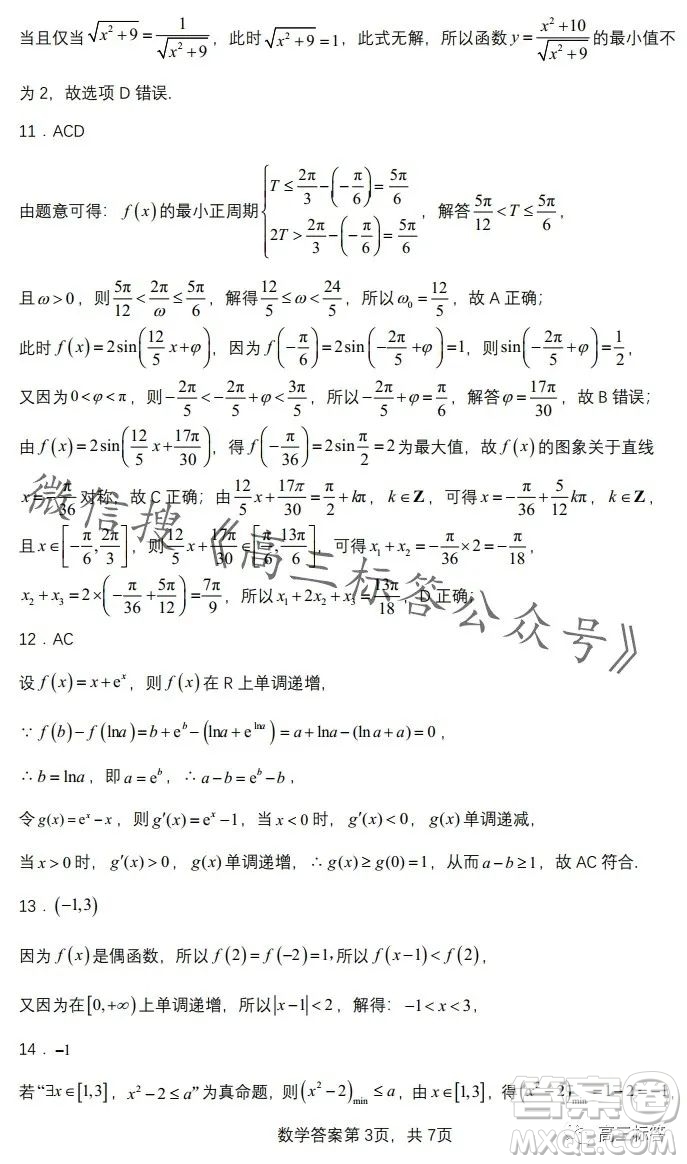 当且仅当 √(x²+9) = 1/√(x²+9)，此时 √(x²+9) = 1，此式无解，所以函数 y = (x²+10)/√(x²+9) 的最小值不
为 2，故选项 D 错误.
11．ACD
由题意可得：f(x) 的最小正周期 { T ≤ 2π/3 − (−π/6) = 5π/6 ; 2T > 2π/3 − (−π/6) = 5π/6，解答 5π/12 < T ≤ 5π/6，
且 ω > 0，则 5π/12 < 2π/ω ≤ 5π/6，解得 12/5 ≤ ω < 24/5，所以 ω₀ = 12/5，故 A 正确；
此时 f(x) = 2sin(12/5 x+φ)，因为 f(−π/6) = 2sin(−2π/5 + φ) = 1，则 sin(−2π/5 + φ) = 1/2，
又因为 0 < φ < π，则 −2π/5 < −2π/5 + φ < 3π/5，所以 −2π/5 + φ = π/6，解答 φ = 17π/30，故 B 错误；
由 f(x) = 2sin(12/5 x + 17π/30)，得 f(−π/36) = 2sin π/2 = 2 为最大值，故 f(x) 的图象关于直线
x = −π/36 对称，故 C 正确；由 12/5 x + 17π/30 = π/2 + kπ，k ∈ Z，可得 x = −π/36 + 5/12 kπ，k ∈ Z，
且 x ∈ [−π/6, 2π/3]，则 12/5 x + 17π/30 ∈ [π/6, 13π/6]，可得 x₁ + x₂ = −π/36 × 2 = −π/18，
x₂ + x₃ = 2 × (−π/36 + 5π/12) = 7π/9，所以 x₁ + 2x₂ + x₃ = 13π/18，D 正确；
微信搜《高三标答公众号》
12．AC
设 f(x) = x + eˣ，则 f(x) 在 R 上单调递增，
∵ f(b) − f(lna) = b + eᵇ − (lna + e^(lna)) = a + lna − (lna + a) = 0，
∴ b = lna，即 a = eᵇ，∴ a − b = eᵇ − b，
令 g(x) = eˣ − x，则 g′(x) = eˣ − 1，当 x < 0 时，g′(x) < 0，g(x) 单调递减，
当 x > 0 时，g′(x) > 0，g(x) 单调递增，∴ g(x) ≥ g(0) = 1，从而 a − b ≥ 1，故 AC 符合.
13．(−1,3)
因为 f(x) 是偶函数，所以 f(2) = f(−2) = 1，所以 f(x−1) < f(2)，
又因为在 [0,+∞) 上单调递增，所以 |x−1| < 2，解得：−1 < x < 3，
14．−1
若“∃x ∈ [1,3]，x² − 2 ≤ a”为真命题，则 (x² − 2)min ≤ a，由 x ∈ [1,3]，得 (x² − 2)min = 1 − 2 = −1，
数学答案第 3页，共 7页
高三标答
MXQE.COM